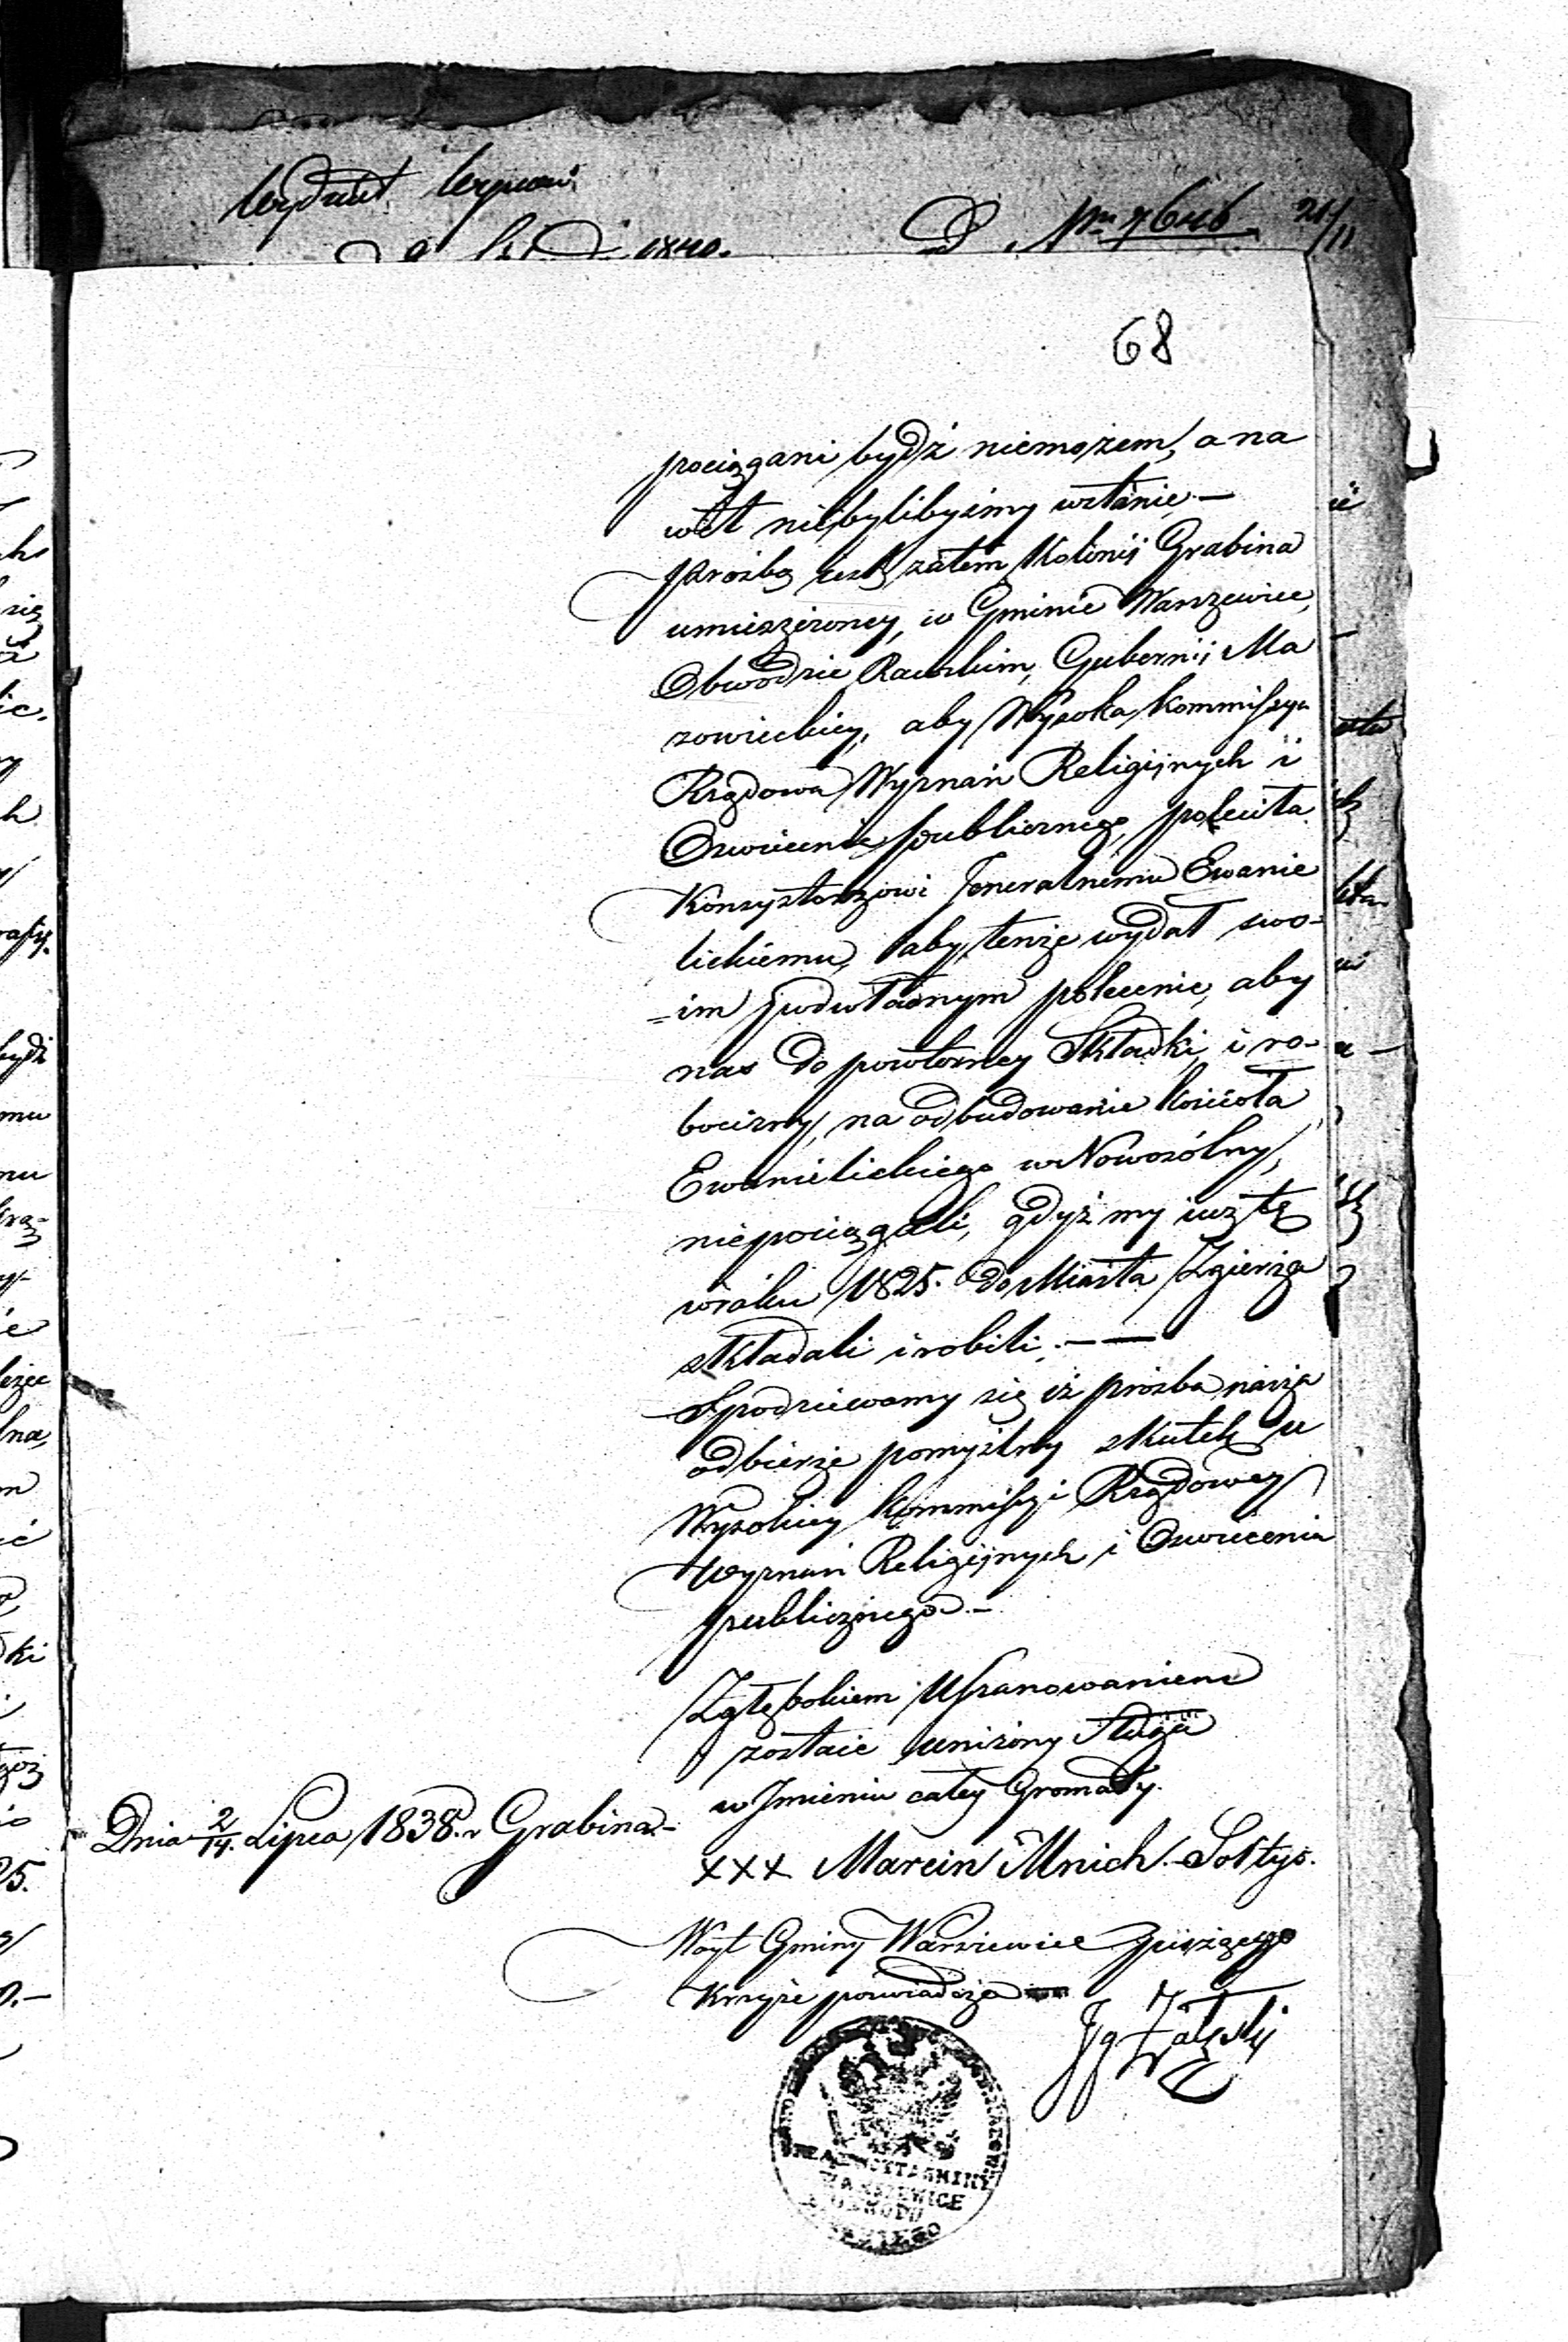 Wydział Wyznań
1840.
D Nro 7646 21/11
68
pociągani bydź niemożem, a na
wet niebylibyśmy wstanie. —
Prozbą iest zatem Kolonij Grabina
umieszczoney, w Gminie Warszewice,
Obwodzie Rawskim, Gubernij Ma
zowieckiey, aby Wysoka Kommissya
Rządowa Wyznań Religijnych i
Oswiecenia publicznego, poleciła
Konsystorzowi Jeneralnemu Ewanie
lickiemu, aby tenże wydał swo-
=im podwładnym polecenie, aby
nas do powtorney Składki, i ro-
bocizny, na odbudowanie kościoła
Ewanielickiego w Nowosólny,
niepociągali, gdyż my iuż tę
wroku 1825. do Miasta Zgierza
składali i robili. — —
Spodziewamy się iż prozba nasza
odbierze pomyślny skutek u
Wysokiey Kommissyi Rządowey
Wyznań Religijnych i Oswiecenia
publicznego. —
Zgłębokiem Uszanowaniem
zostaie uniżony Sługa
w Jmieniu całey Gromady.
Dnia 2/14. Lipca 1838. r. Grabina. —
xxx Marcin Mnich. — Sołtys.
Woyt Gminy Warszewice
Krzyże poswiadcza
WOYTA GMINY
WARSZEWICE
OBWODU